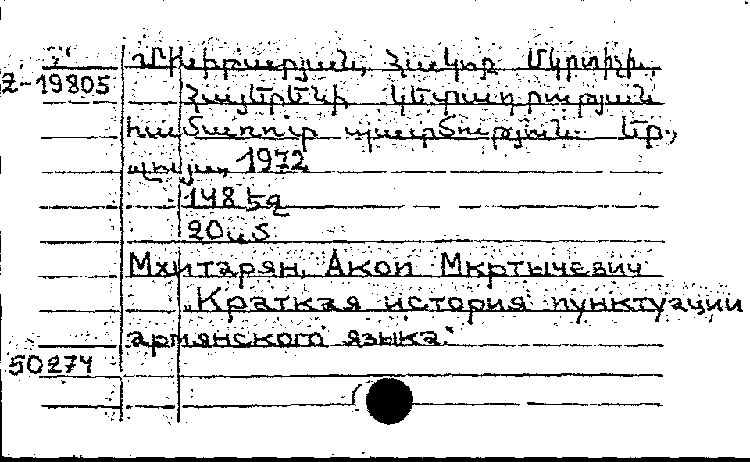 Մխիթարյան, Հակոբ Մկրտիչի,
Z-19805
Հայերենի կետադրության
համառոտ պատմություն. Եր.,
„Լույս", 1972
148 էջ
20 սմ
Мхитарян, Акоп Мкртычевич
„Краткая история пунктуации
армянского языка."
50274